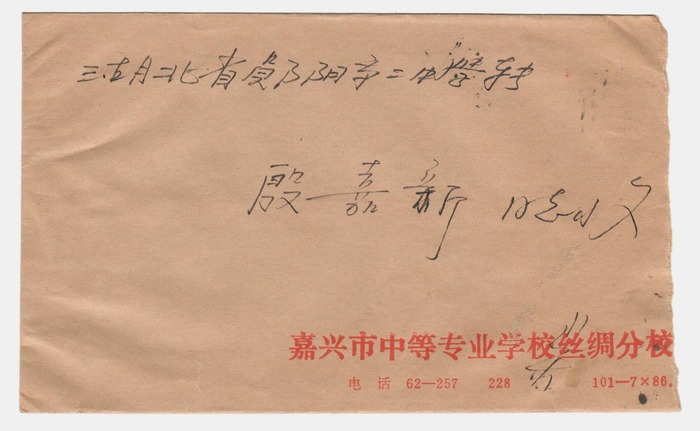 湖北省黄阳市二中 转
殷嘉新 收
嘉兴市中等专业学校丝绸分校
电话 62—257 228 101—7×86.